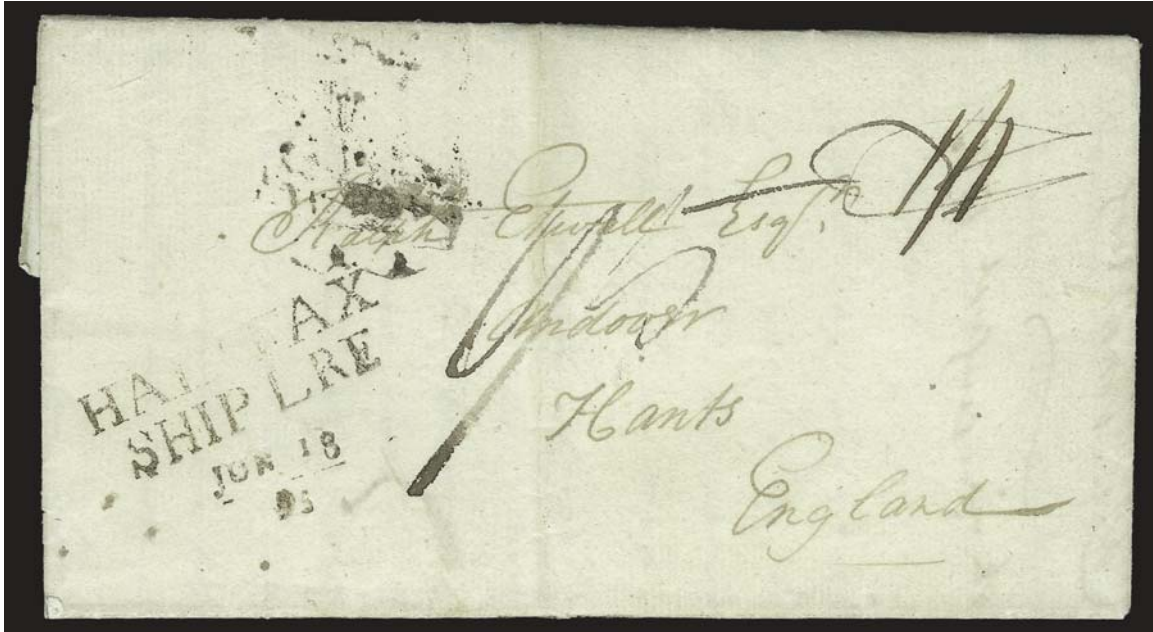 Ralph Etwall Esqr.
Andover
Hants
England
HALIFAX
SHIP LRE
JUN 18
95